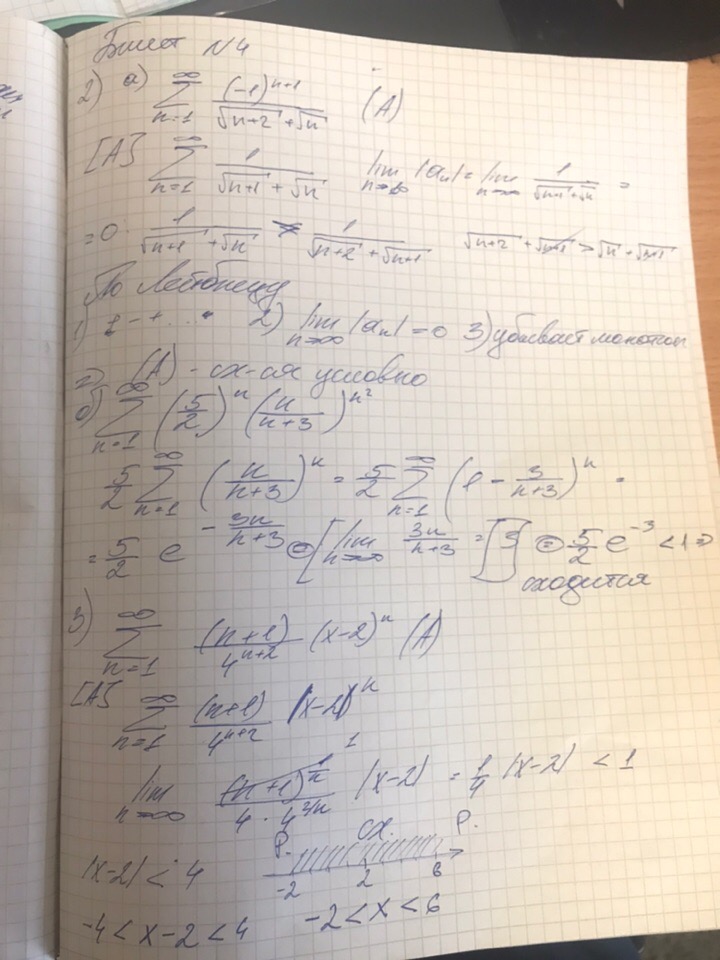 Билет N4
2) а) ∑_{n=1}^{∞} (-1)^{n+1}/(√(n+2) + √n) (A)
[A] ∑_{n=1}^{∞} 1/(√(n+1) + √n) lim_{n→∞} |aₙ| = lim_{n→∞} 1/(√(n+1) + √n) =
= 0 1/(√(n+1) + √n) > 1/(√(n+2) + √(n+1)) √(n+2) + √(n+1) > √n + √(n+1)
По Лейбницу
1) + - + ... 2) lim_{n→∞} |aₙ| = 0 3) убывает монотон
=> (A) - сх-ся условно
б) ∑_{n=1}^{∞} (5/2)^n (n/(n+3))^{n²}
5/2 ∑_{n=1}^{∞} (n/(n+3))^n = 5/2 ∑_{n=1}^{∞} (1 - 3/(n+3))^n =
= 5/2 e^{-3n/(n+3)} = [lim_{n→∞} 3n/(n+3) = 3] = 5/2 e^{-3} < 1 =>
сходится
3) ∑_{n=1}^{∞} (n+1)/4^{n+2} (x-2)^n (A)
[A] ∑_{n=1}^{∞} (n+1)/4^{n+2} |x-2|^n
lim_{n→∞} (n+1)^{1/n}/(4 · 4^{2/n}) |x-2| = 1/4 |x-2| < 1
1
Р. сх. Р.
|x-2| < 4 -2 2 6
-4 < x-2 < 4 -2 < x < 6